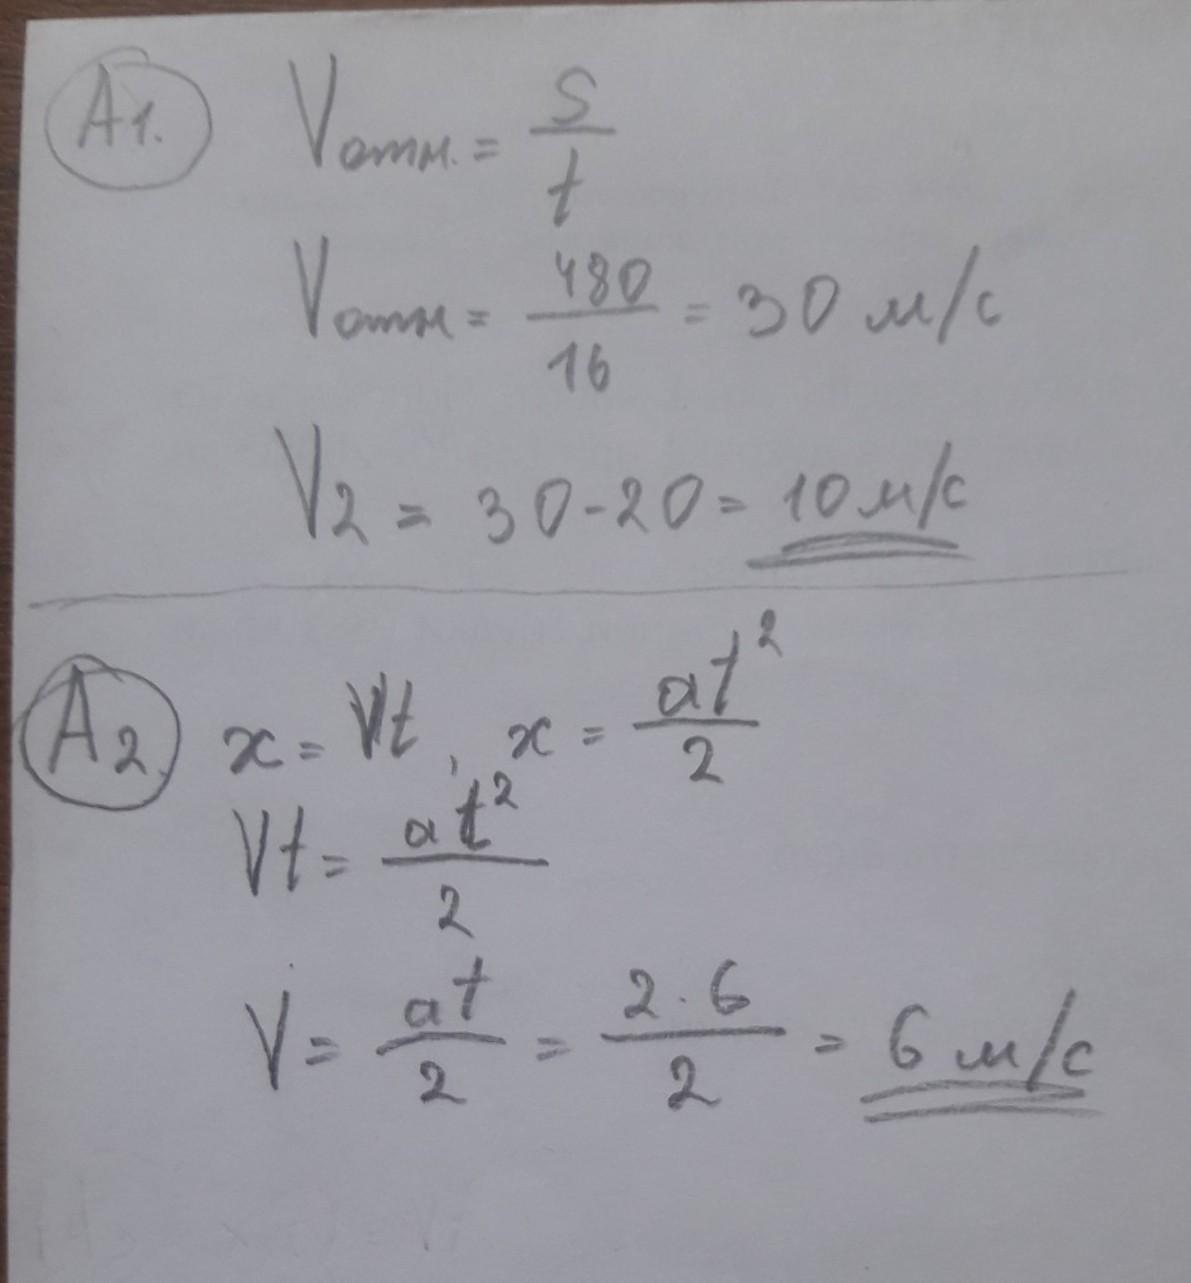 A1. Vотн. = S/t
Vотн = 480/16 = 30 м/с
V2 = 30-20 = 10 м/с
A2. x = Vt, x = at²/2
Vt = at²/2
V = at/2 = 2·6/2 = 6 м/с